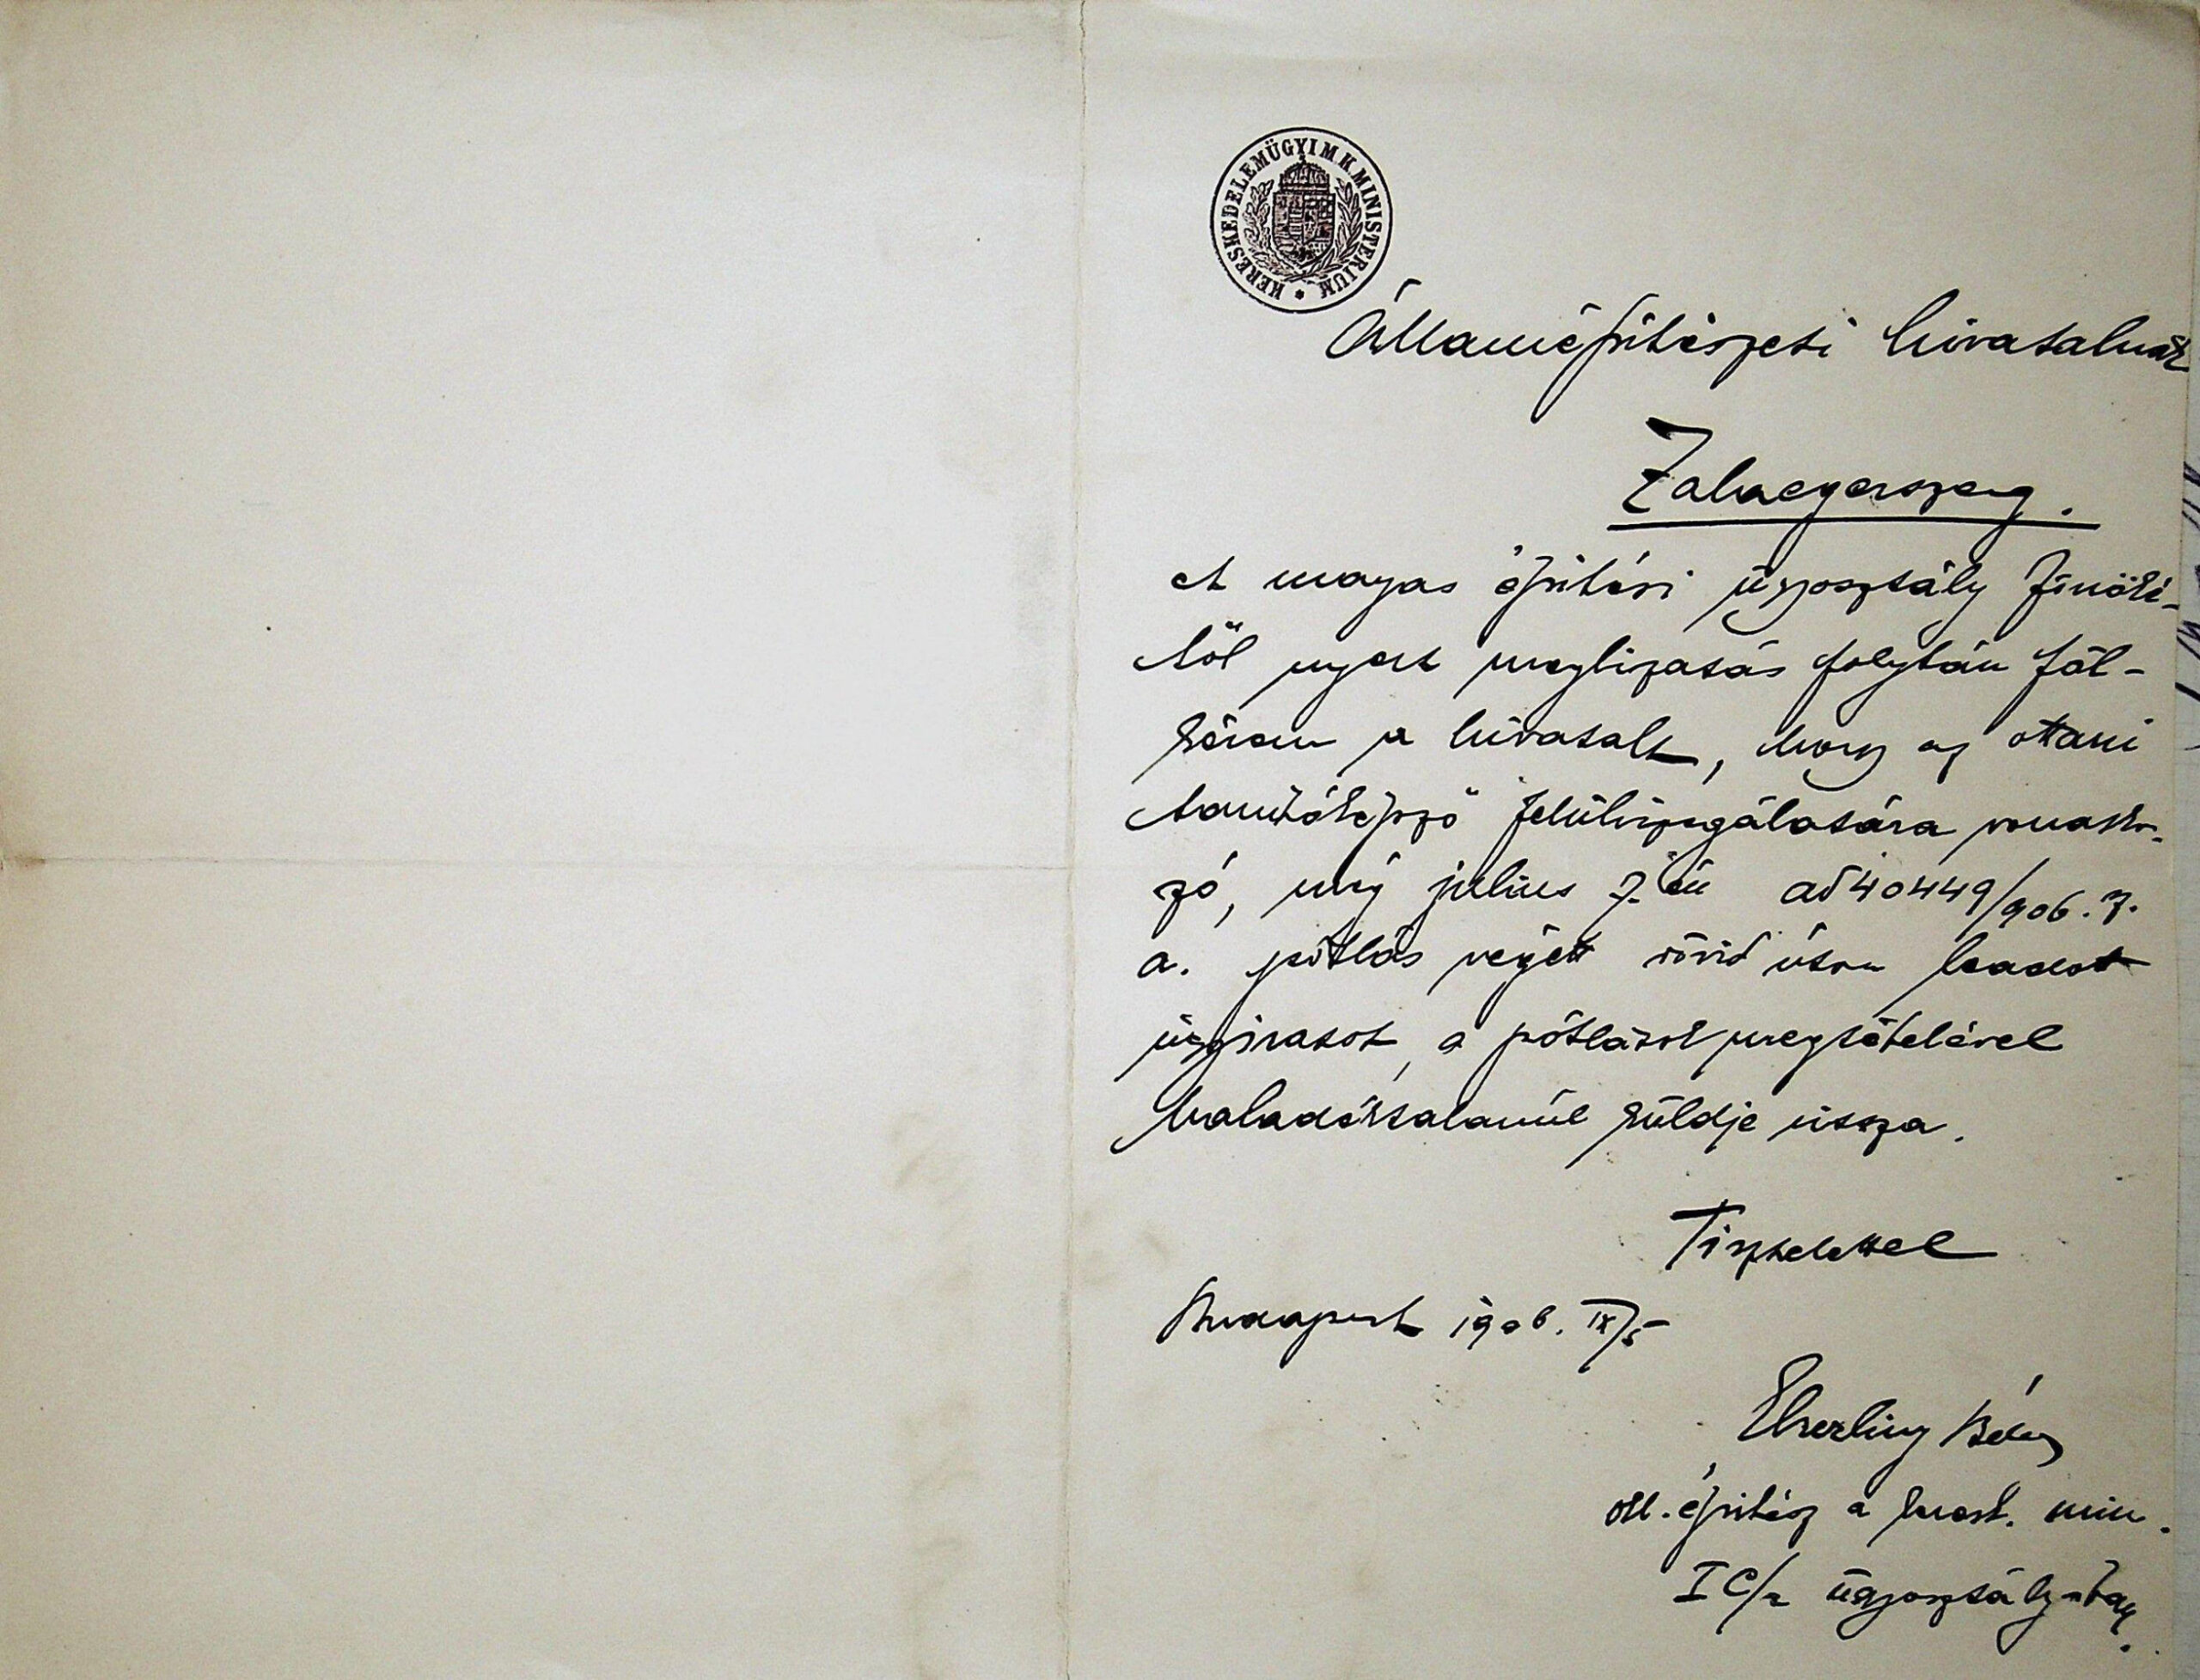 KERESKEDELEMÜGYI M K MINISTERIUM
Államépitészeti hivatalnak
Zalaegerszeg.
A magas épitési ügyosztály főnöké-
től nyert megbizatás folytán föl-
kérem a hivatalt, hogy az ottani
tanitóképző felülvizsgálatára vonatko-
zó, még julius 7-én ad 40449/906. sz.
a. pótlás végett rövid úton leadott
ügyiratot, a pótlások megtételével
haladéktalanúl küldje vissza.
Tisztelettel
Budapest 1906. IX/5
Eberling Béla
áll. épitész a keresk. min.
I C/2 ügyosztályában.